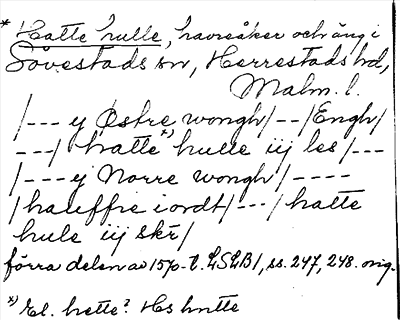 * Hatte hulle, havreåker och äng i
Sövestads sn, Herrestads hd,
Malm. l.
/--- y Østre wongh/--/Engh/
---/ hatte *) hulle iij les/---
/--- y Norre wongh/----
/haluffie iordt/---/hatte
hule iij skr/
förra delen av 1570-t. LSLB1, ss. 247, 248. orig.
*) El. hette? Hs hntte